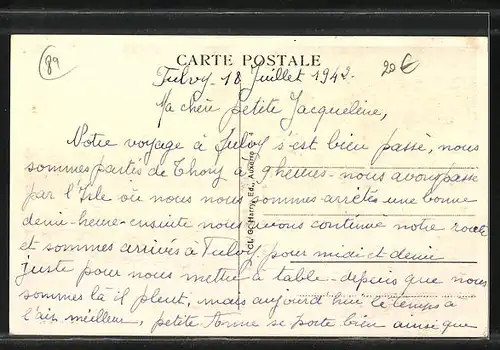 89
CARTE POSTALE
20€
Fulvy - 18 Juillet 1942.
Ma chère petite Jacqueline,
Notre voyage à Fulvy s'est bien passé, nous
sommes partis de Thory à 9 heures - nous avons passé
par l'Isle où nous nous sommes arrêtés une bonne
demi-heure - ensuite nous avons continué notre route
et sommes arrivés à Fulvy pour midi et demie
juste pour nous mettre à table - depuis que nous
sommes là il pleut, mais aujourd'hui le temps a
l'air meilleur, petite Anne se porte bien ainsi que
Marry, Ed., Auxerre